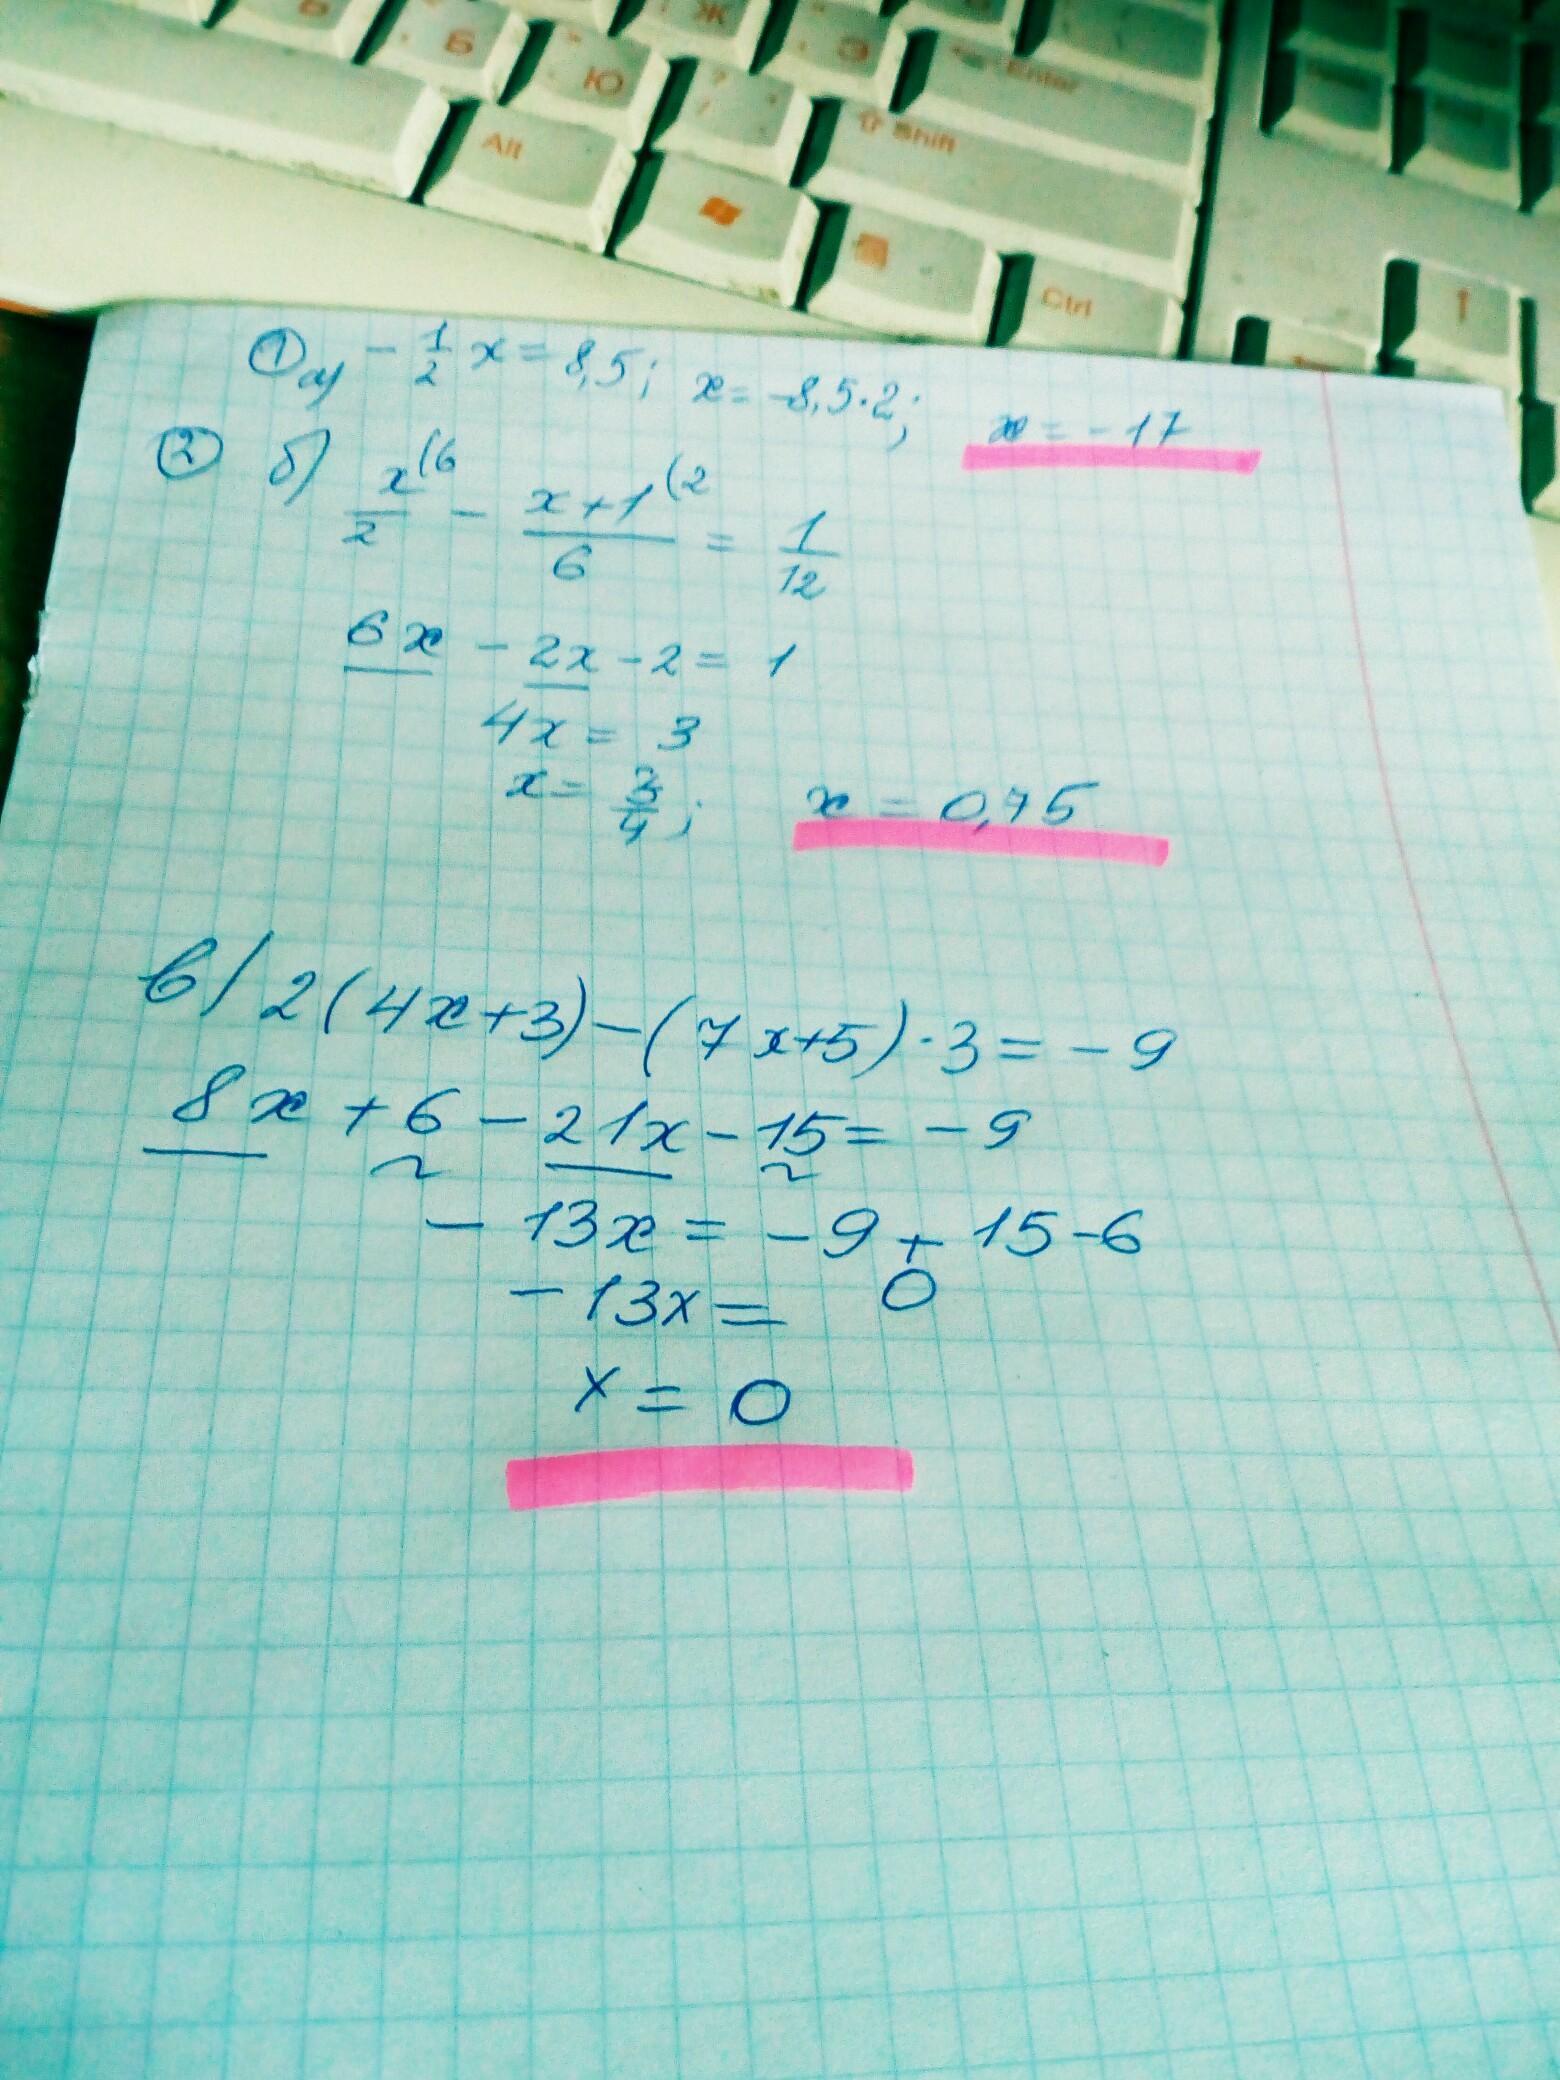 Б Ж
Б Ю ? / Э Enter
Alt Shift
Ctrl
① а) - 1/2 x = 8,5; x = -8,5·2; x = -17
② б) x/2 (6 - x+1/6 (2 = 1/12
6x - 2x - 2 = 1
4x = 3
x = 3/4; x = 0,75
в) 2(4x+3) - (7x+5)·3 = -9
8x + 6 - 21x - 15 = -9
- 13x = -9 + 15 - 6
- 13x = 0
x = 0